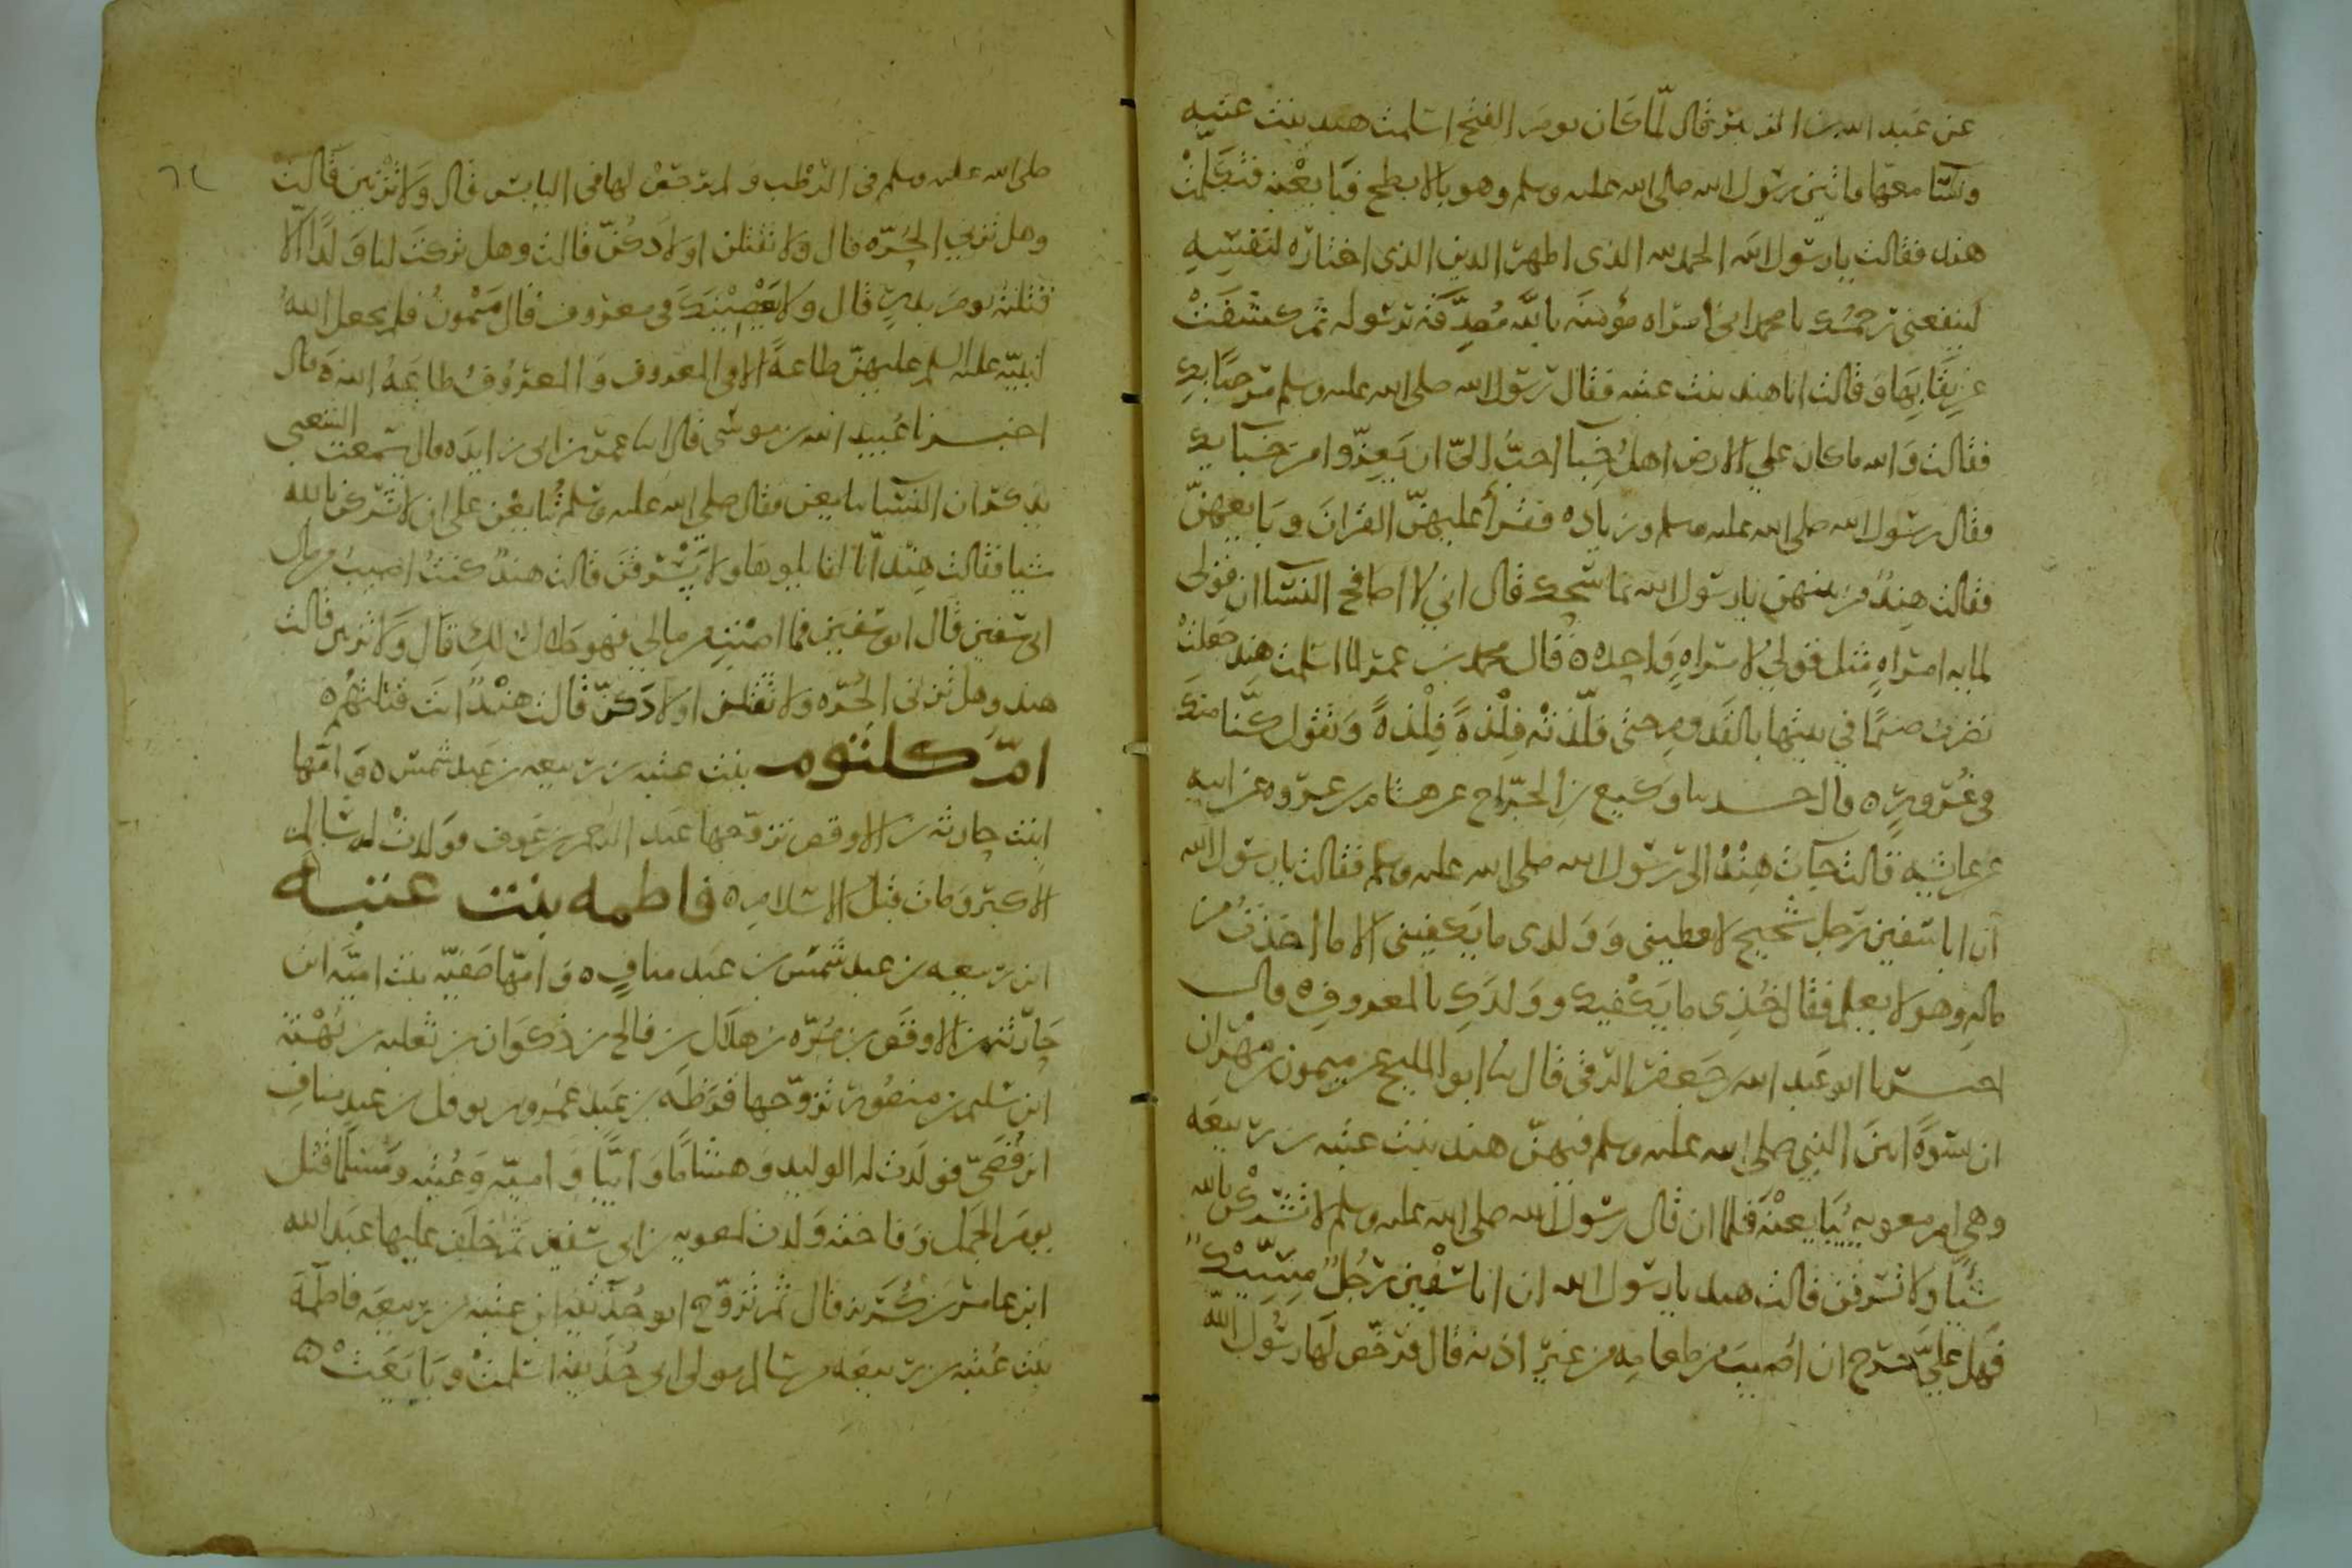 عن عبد الله بن الزبير قال لما كان يوم الفتح اسلمت هند بنت عتبه
ونسا معها واتين رسول الله صلى الله عليه وسلم وهو بالابطح فبايعنه فتكلمت
هند فقالت يا رسول الله الحمد لله الذي اظهر الدين الذي اختاره لنفسه
لتنفعني رحمك يا محمد اني امراه مؤمنه بالله مصدقه برسوله ثم كشفت
عن نقابها وقالت انا هند بنت عتبه فقال رسول الله صلى الله عليه وسلم مرحبا بك
فقالت والله ما كان علي الارض اهل خبا احب الي ان يعزوا من خبايك
فقال رسول الله صلى الله عليه وسلم وزياده فقرأ عليهن القران وبايعهن
فقالت هند من بينهن يا رسول الله نماسحك قال اني لا اصافح النسا ان قولي
لمايه امراه مثل قولي لامراه واحده ه قال محمد بن عمر لما اسلمت هند جعلت
تضرب صنما في بيتها بالقدوم حتى فلذته فلذة فلذة وتقول كنا منك
في غرور ه قال حدسا وكيع بن الجراح عن هشام بن عروه عن ابيه
عن عايشه قالت جات هند الى رسول الله صلى الله عليه وسلم فقالت يا رسول الله
ان ابا سفين رجل شحيح لا يعطيني وولدي ما يكفيني الا ما اخذت من
ماله وهو لا يعلم فقال خذي ما يكفيك وولدك بالمعروف ه قال
اخبرنا ابو عبد الله بن جعفر الرقي قال سا ابو المليح عن ميمون بن مهران
ان نسوة اتين النبي صلى الله عليه وسلم فيهن هند بنت عتبه بن ربيعه
وهي ام معويه يبايعنه فلما ان قال رسول الله صلى الله عليه وسلم لا تشركن بالله
شيا ولا تسرقن قالت هند يا رسول الله ان ابا سفين رجل مسيك
فهل علي حرج ان اصيب من طعامه من غير اذنه قال فرخص لها رسول الله
صلى الله عليه وسلم في الرطب ولم يرخص لها في اليابس قال ولا تزنين قالت
وهل تزني الحره قال ولا تقتلن اولادكن قالت وهل تركت لنا ولدا الا
قتلته يوم بدر قال ولا يعصينك في معروف قال ميمون فلم يجعل الله
لنبيه عليه السلم عليهن طاعة الا في المعروف والمعروف طاعة الله ه قال
اخبرنا عبيد الله بن موسى قال انا عمر بن ابي زايده قال سمعت الشعبي
يذكر ان النسا بايعن فقال صلى الله عليه وسلم تبايعن على ان لا تشركن بالله
شيا فقالت هند انا لقايلوها ولا يسرقن قالت هند كنت اصيب من مال
ابي سفين قال ابو سفين فما اصبت من مالي فهو حلال لك قال ولا تزنين قالت
هند وهل تزني الحره ولا تقتلن اولادكن قالت هند انت قتلتهم ه
ام كلثوم بنت عتبه بن ربيعه بن عبد شمس ه وامها
ابنت حارثه بن الاوقص تزوجها عبد الرحمن بن عوف فولدت له سالم
الاكبر ومات قبل الاسلام ه فاطمه بنت عتبه
ابن ربيعه بن عبد شمس بن عبد مناف ه وامها صفيه بنت اميه ابن
حارثه بن الاوقص بن مره بن هلال بن فالح بن ذكوان بن ثعلبه بن بهثه
ابن سليم بن منصور تزوجها قرظه بن عبد عمرو بن نوفل بن عبد مناف
ابن قصي فولدت له الوليد وهشاما وابيا واميه وعتبه ومسلما قتل
يوم الجمل وفاخته ولدت لمعويه بن ابي سفين ثم خلف عليها عبد الله
ابن عامر بن كريز قال ثم تزوج ابو حذيفه ابن عتبه بن ربيعه فاطمة
بنت عتبه بن ربيعه من سالم مولى ابي حذيفه اسلمت وبايعت ه